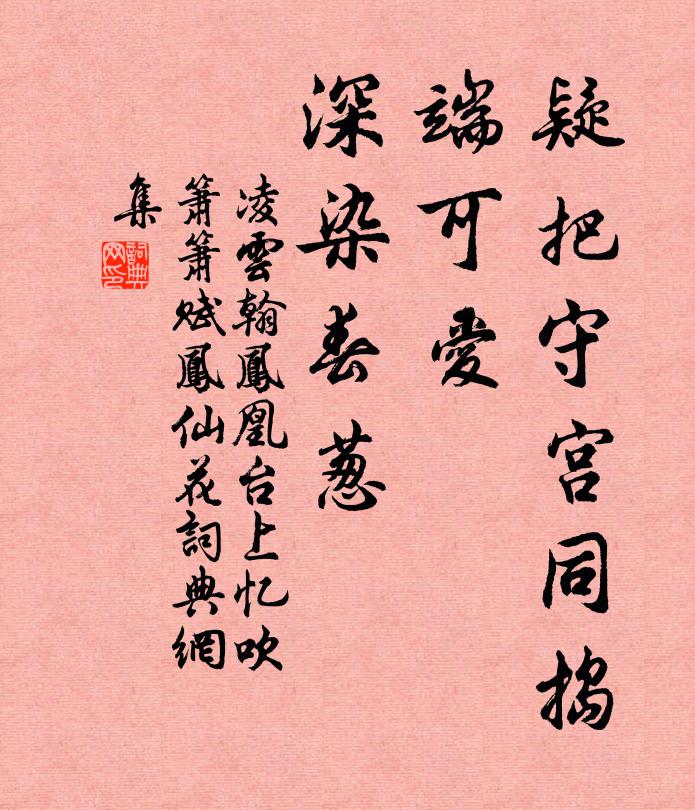 疑把守宫同捣
端可爱
深染春葱
凌雲翰鳳凰台上忆吹
箫箫賦鳳仙花詞典網
集
詞典
网印